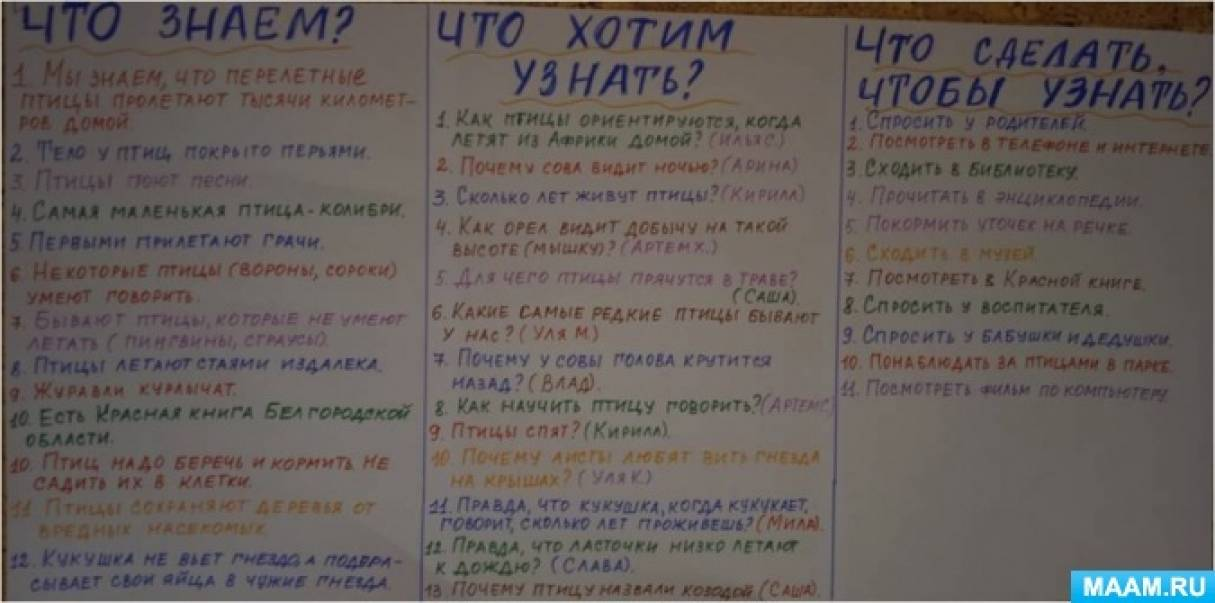 ЧТО ЗНАЕМ?
1. Мы знаем, что перелетные
птицы пролетают тысячи километ-
ров домой.
2. Тело у птиц покрыто перьями.
3. Птицы поют песни.
4. Самая маленькая птица - колибри.
5. Первыми прилетают грачи.
6. Некоторые птицы (вороны, сороки)
умеют говорить.
7. Бывают птицы, которые не умеют
летать (пингвины, страусы).
8. Птицы летают стаями издалека.
9. Журавли курлычат.
10. Есть Красная книга Белгородской
области.
10. Птиц надо беречь и кормить не
садить их в клетки.
11. Птицы сохраняют деревья от
вредных насекомых.
12. Кукушка не вьет гнездо, а подбра-
сывает свои яйца в чужие гнезда.
ЧТО ХОТИМ
УЗНАТЬ?
1. Как птицы ориентируются, когда
летят из Африки домой? (Ильяс.)
2. Почему сова видит ночью? (Арина)
3. Сколько лет живут птицы? (Кирилл)
4. Как орел видит добычу на такой
высоте (мышку)? (Артем Х.)
5. Для чего птицы прячутся в траве?
(Саша).
6. Какие самые редкие птицы бывают
у нас? (Уля М.)
7. Почему у совы голова крутится
назад? (Влад).
8. Как научить птицу говорить? (Артем С
9. Птицы спят? (Кирилл).
10. Почему аисты любят вить гнезда
на крышах? (Уля К.)
11. Правда, что кукушка, когда кукукает,
говорит, сколько лет проживешь? (Мила).
12. Правда, что ласточки низко летают
к дождю? (Слава).
13. Почему птицу назвали козодой (Саша).
ЧТО СДЕЛАТЬ,
ЧТОБЫ УЗНАТЬ?
1. Спросить у родителей.
2. Посмотреть в телефоне и интернете.
3. Сходить в библиотеку.
4. Прочитать в энциклопедии.
5. Покормить уточек на речке.
6. Сходить в музей.
7. Посмотреть в Красной книге.
8. Спросить у воспитателя.
9. Спросить у бабушки и дедушки.
10. Понаблюдать за птицами в парке.
11. Посмотреть фильм по компьютеру.
MAAM.RU